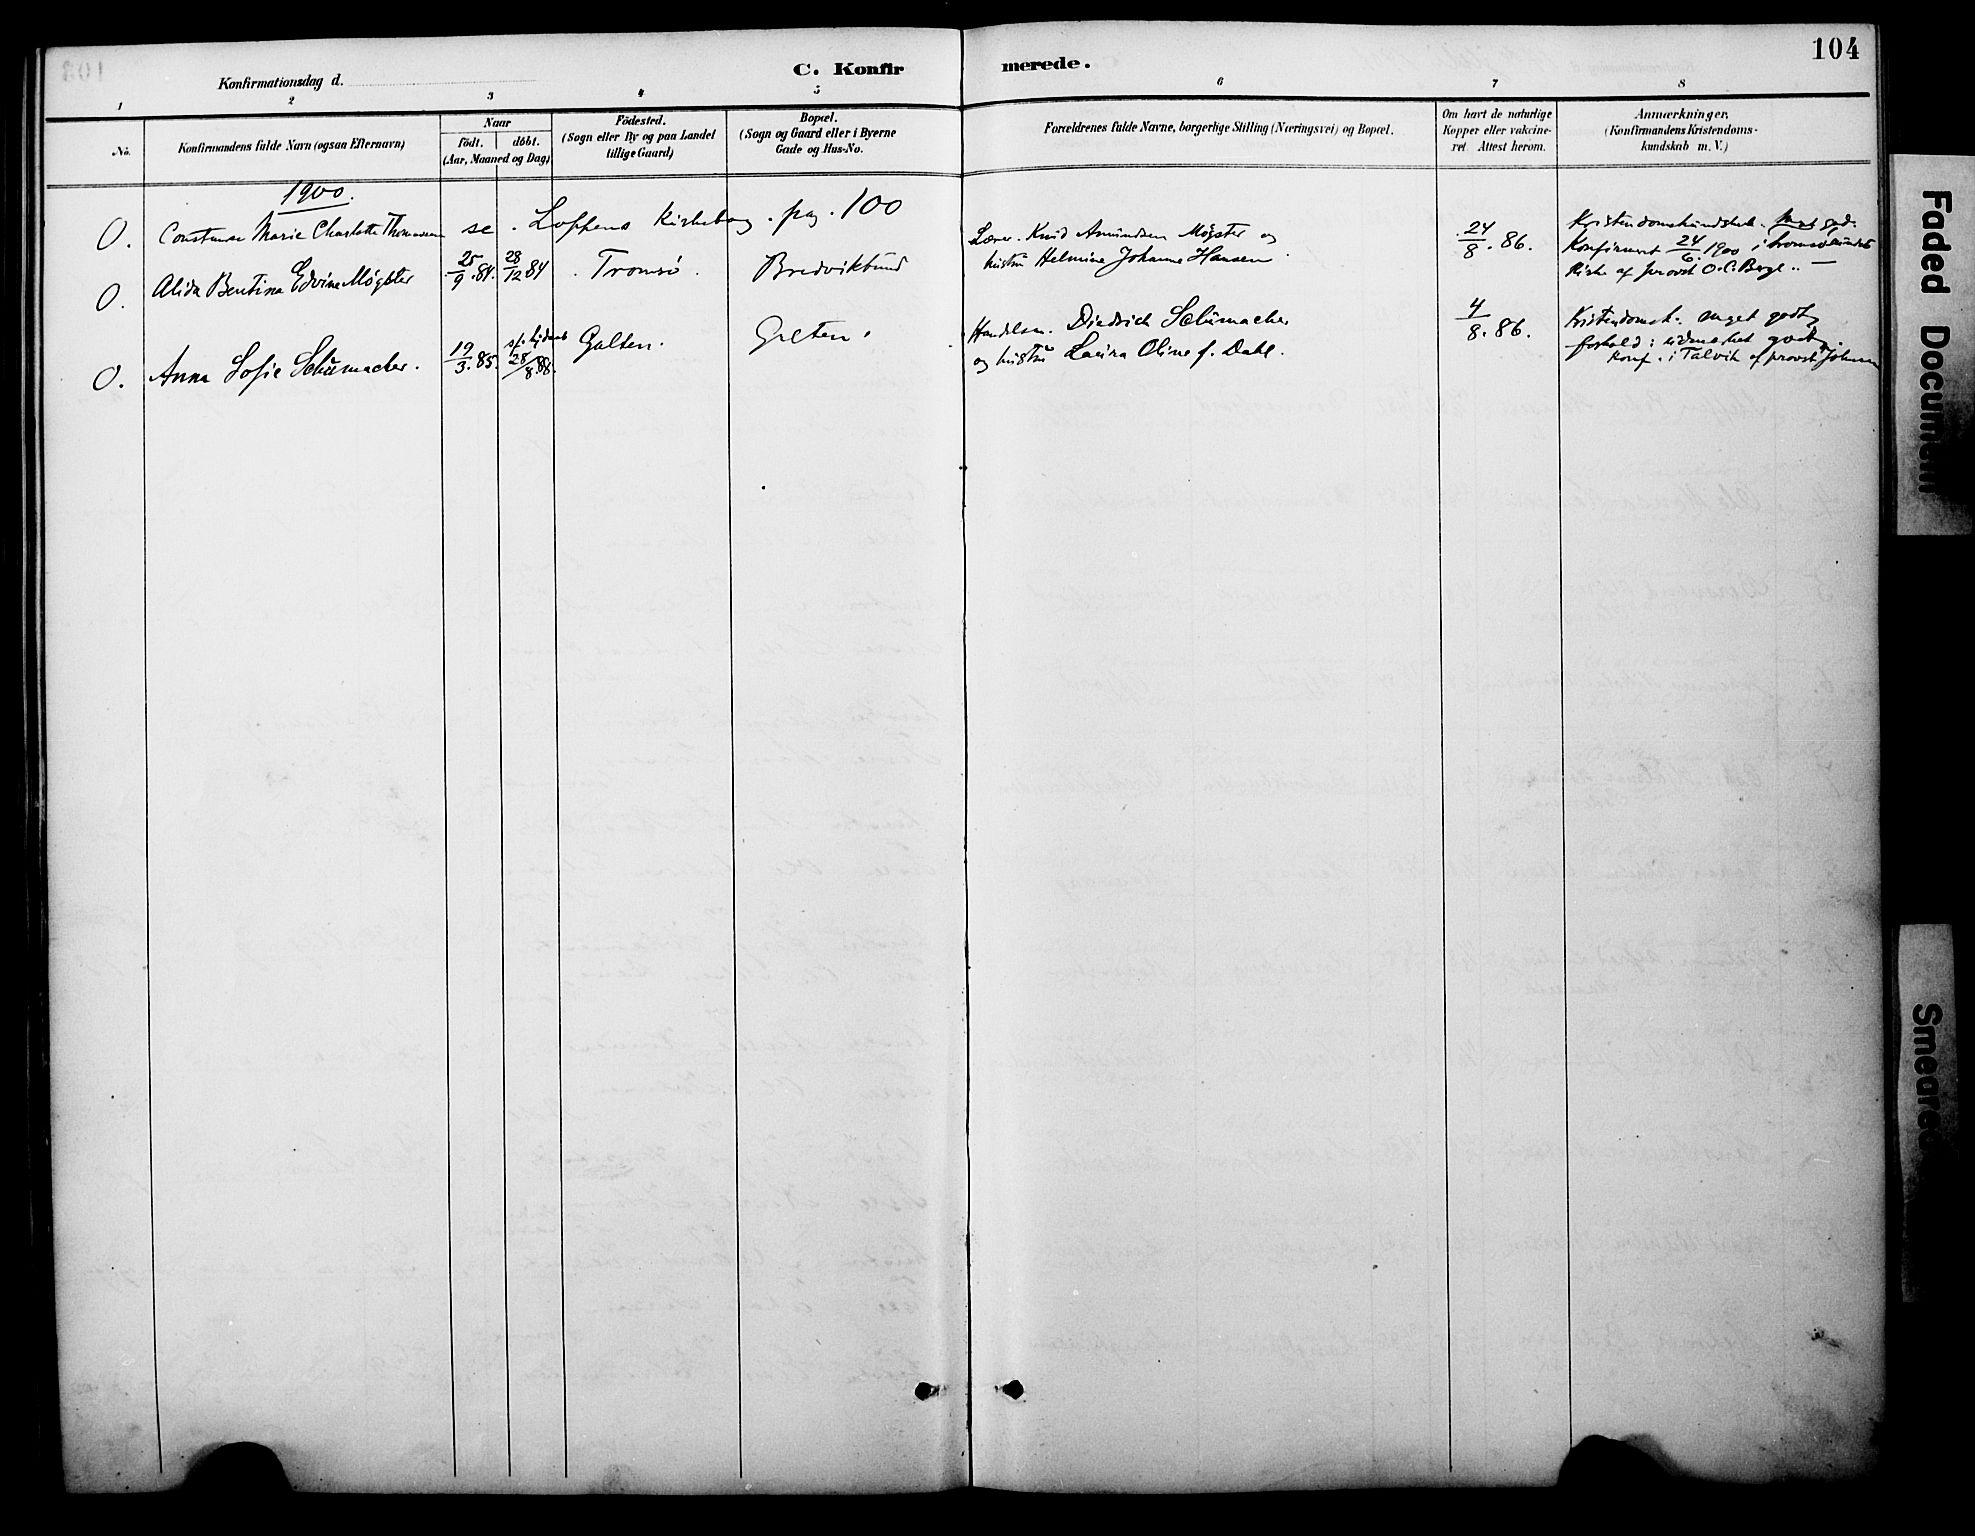 104
Konfirmationsdag d.
C. Konfirmerede.
1 2 3 4 5 6 7 8
No.
Konfirmandens fulde Navn (ogsaa Efternavn)
Naar
født. døbt.
(Aar, Maaned og Dag)
Födested.
(Sogn eller By og paa Landet
tillige Gaard)
Bopæl.
(Sogn og Gaard eller i Byerne
Gade og Hus-No.
Forældrenes fulde Navne, borgerlige Stilling (Næringsvei) og Bopæl.
Om havt de naturlige
Kopper eller vakcine-
ret. Attest herom.
Anmærkninger.
(Konfirmandens Kristendoms-
kundskab m. V.)
1900.
O. Constanse Marie Charlotte Thomassen se. Loppens Kirkebog. pag. 100
O. Alida Bentina Edvine Møgster 25/9.84. 28/12 84 Tromsø. Bredvikbund
Lærer. Knud Amundsen Møgster og
hustru Helmine Johanne Hansen.
24/8. 86.
Kristendomskundskab. meget god.
Konfirmeret 24/6 1900 i Tromsøsundets
Kirke af provst O. C. Berge.. —
O. Anna Sofie Schumacher. 19/3.85. 28/8.88. Galten. Galten.
Handelsm. Diedrich Schumacher
og hustru Laura Oline f. Dahl.
4/8. 86.
Kristendomsk. meget godt,
forhold: udmerket godt.
Konf. i Talvik af provst